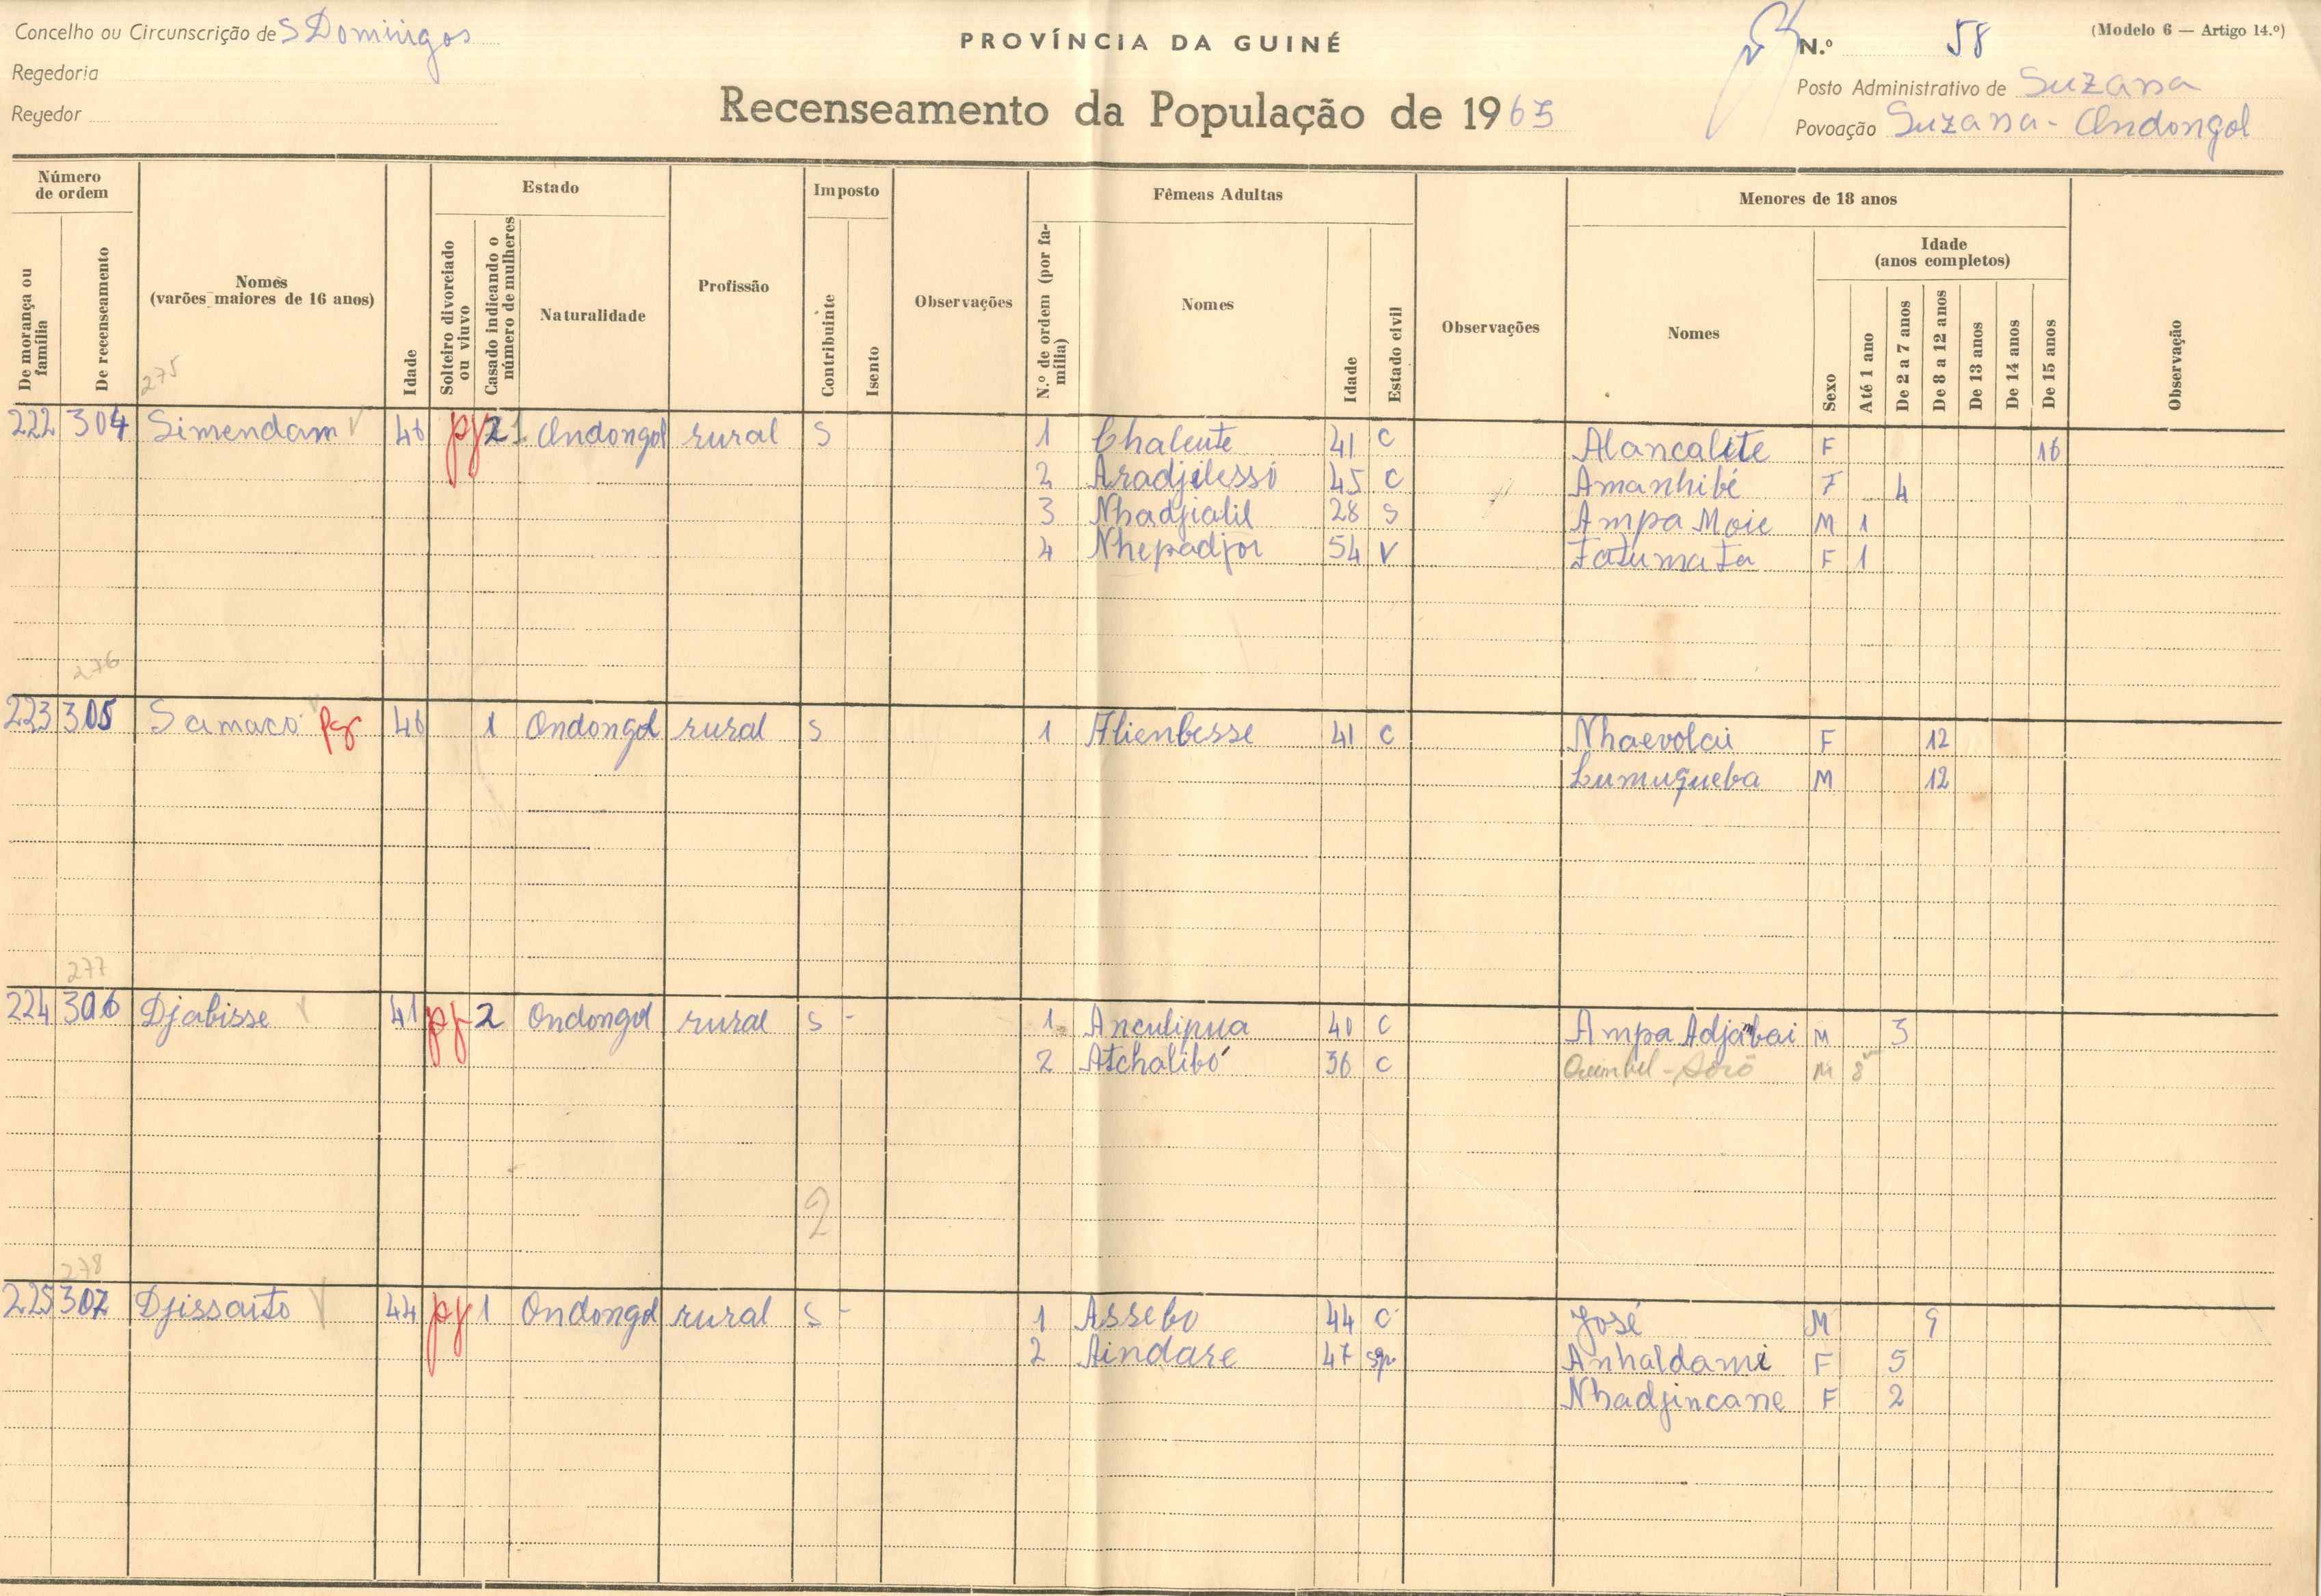 Concelho ou Circunscrição de S Domingos
PROVÍNCIA DA GUINÉ
N.º 58
(Modelo 6 — Artigo 14.º)
Regedoria
Posto Administrativo de Suzana
Regedor
Recenseamento da População de 1963
Povoação Suzana - Ondongol
Número de ordem
De morança ou família
De recenseamento
Nomes (varões maiores de 16 anos)
Idade
Estado
Solteiro divorciado ou viuvo
Casado indicando o número de mulheres
Naturalidade
Profissão
Imposto
Contribuinte
Isento
Observações
Fêmeas Adultas
N.º de ordem (por família)
Nomes
Idade
Estado civil
Observações
Menores de 18 anos
Nomes
Sexo
Idade (anos completos)
Até 1 ano
De 2 a 7 anos
De 8 a 12 anos
De 13 anos
De 14 anos
De 15 anos
Observação
275
222 304 Simendam 46 pg 2 Ondongol rural S 1 Chalente 41 C Alancalite F 16
2 Aradjilesso 45 C Amanhibé F 4
3 Nhadjialil 28 S Ampa Moie M 1
4 Nhepadjor 54 V Fatumata F 1
276
223 305 Samaco pg 46 1 Ondongol rural S 1 Alienbesse 41 C Nhaevolai F 12
Lumuqueba M 12
277
224 306 Djabisse 41 pg 2 Ondongol rural S - 1 Anculipua 40 C Ampa Adjambai M 3
2 Atchalibó 36 C M 8
2
278
225 307 Djissaito 44 pg 1 Ondongol rural S - 1 Assebo 44 C José M 9
2 Aindare 47 sp Anhaldami F 5
Nhadjincane F 2